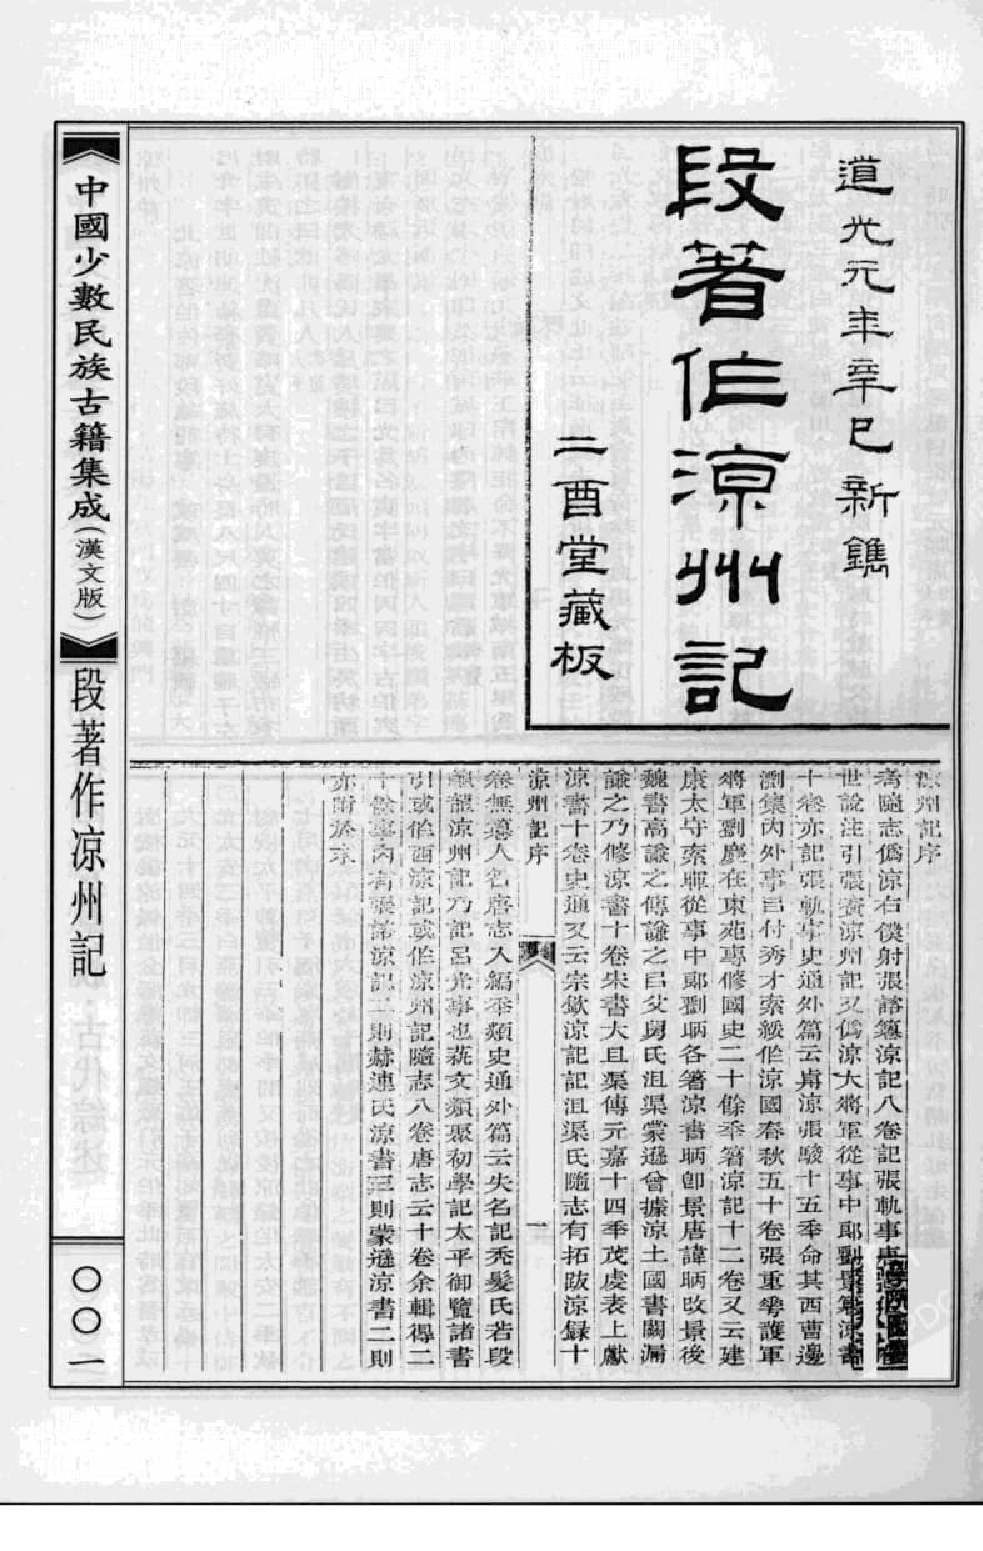 道光元年辛巳新鐫
段著作涼州記
二酉堂藏板
涼州記序
考隨志僞涼右僕射張諮纂涼記八卷記張軌事
世說注引張資涼州記又僞涼大將軍從事中郎劉景纂涼書
十卷亦記張軌事史通外篇云前涼張駿十五年命其西曹邊
瀏集內外事巳付秀才索綏作涼國春秋五十卷張重華護軍
將軍劉慶在東苑專修國史二十餘年著涼記十二卷又云建
康太守索暉從事中郎劉昞各箸涼書昞卽景唐諱昞攺景後
魏書高謙之傳謙之㠯父舅氏沮渠蒙遜曾據涼土國書闕漏
謙之乃修涼書十卷宋書大且渠傳元嘉十四年茂虔表上獻
涼書十卷史通又云宗欽涼記記沮渠氏隨志有拓跋涼錄十
涼州記序
一
卷無纂人名唐志入編年類史通外篇云失名記禿髮氏若段
龜龍涼州記乃記呂光事也蓺文類聚初學記太平御覽諸書
引或作西涼記或作涼州記隨志八卷唐志云十卷余輯得二
十數事內有張諮涼記二則赫連氏涼書三則蒙遜涼書二則
亦附於末
中國少數民族古籍集成(漢文版)
段著作涼州記
〇〇一